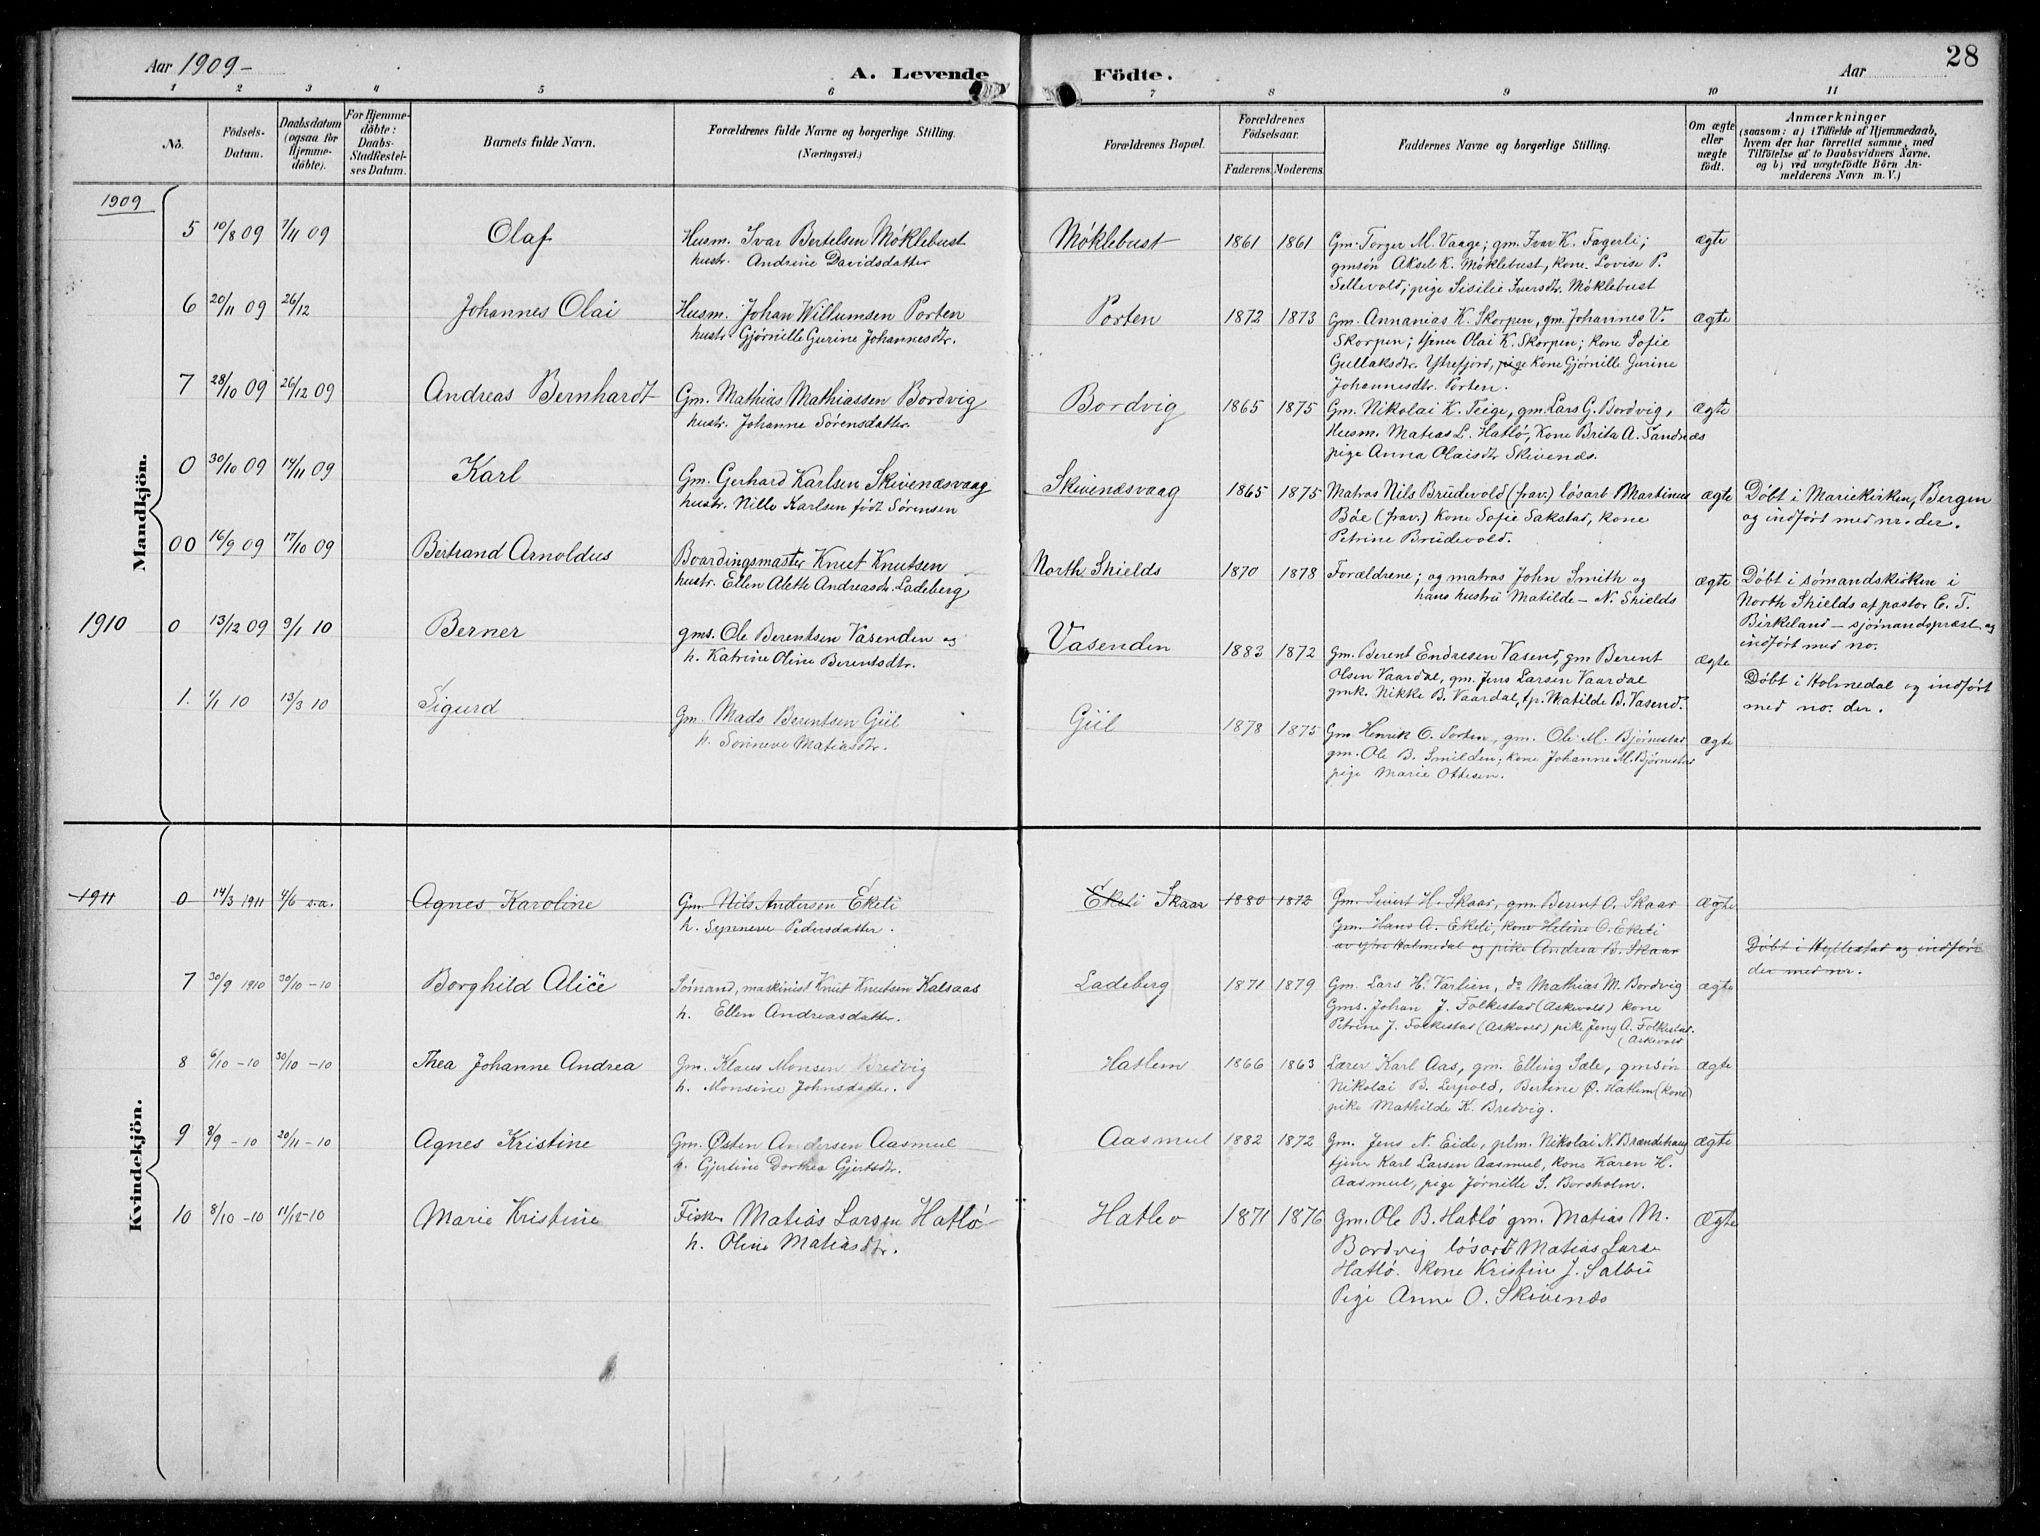 Aar 1909-
A. Levende Födte.
Aar
28
1 2 3 4 5 6 7 8 9 10 11
No.
Födsels-Datum.
Daabsdatum (ogsaa for Hjemme-döbte).
For Hjemme-döbte: Daabs-Stadfæstel-ses Datum.
Barnets fulde Navn.
Forældrenes fulde Navne og borgerlige Stilling.
(Næringsvei.)
Forældrenes Bopæl.
Forældrenes Födselsaar.
Faderens. Moderens.
Faddernes Navne og borgerlige Stilling.
Om ægte eller uægte födt.
Anmærkninger
(saasom: a) i Tilfælde af Hjemmedaab,
hvem der har forrettet samme, med
Tilföielse af to Daabsvidners Navne.
og b) ved uægtefödte Börn An-
melderens Navn m. V.)
Mandkjön.
1909
5 10/8 09 7/11 09 Olaf Husm. Ivar Bertelsen Møklebust Møklebust 1861 1861 Gm. Torger M. Vaage; gm. Ivar K. Fagerli; ægte
hustr. Andrine Davidsdatter gmsøn Aksel K. Møklebust, kone Lovise P.
Sellevold; pige Sisilie Iversdtr. Møklebust
6 20/11 09 26/12 Johannes Olai Husm. Johan Willumsen Porten Porten 1872 1873 Gm. Annanias K. Skorpen, gm. Johannes V. ægte
hustr. Gjørnille Gurine Johannesdtr. Skorpen; tjener Olai K. Skorpen; kone Sofie
Gullaksdtr. Ytrefjord, pige Kone Gjørnille Gurine
Johannesdtr. Porten.
7 28/10 09 26/12 09 Andreas Bernhardt Gm. Mathias Mathiassen Bordvig Bordvig 1865 1875 Gm. Nikolai K. Teige, gm. Lars G. Bordvig, ægte
hustr. Johanne Sørensdatter. Husm. Matias L. Hatlø, Kone Brita A. Sandnæs
pige Anna Olaisdtr Skivenæs.
0 30/10 09 14/11 09 Karl Gm. Gerhard Karlsen Skivenæsvaag Skivenæsvaag 1865 1875 Matros Nils Brudevold (frav.) løsarb Martinus ægte Døbt i Mariekirken, Bergen
hustr. Nille Karlsen født Sørensen Bøe (frav.) Kone Sofie Sakstad, kone og indført med nr. der.
Petrine Brudevold.
00 16/9 09 17/10 09 Bertrand Arnoldus Boardingsmaster Knut Knutsen North Shields 1870 1878 Forældrene; og matros John Smith og ægte Døbt i sømandskirken i
hustr. Ellen Alette Andreasdr. Ladeberg hans hustru Matilde – N. Shields North Shields af pastor C. T.
Birkeland – sjømandspræst og
indført med no.
1910 0 13/12 09 9/1 10 Berner gms. Ole Berentsen Vasenden og Vasenden 1883 1872 Gm. Berent Endresen Vasend, gm Berent ægte
h. Katrine Oline Berentsdtr. Olsen Vaardal, gm. Jens Larsen Vaardal Døbt i Holmedal og indført
gmk. Nikke B. Vaardal, tp. Matilde B. Vasend. med no. der.
1. 1/1 10 13/3 10 Sigurd Gm. Mads Berentsen Giil Giil 1878 1875 Gm Henrik O. Porten, gm. Ole M. Bjørnestad ægte
h. Sønneve Matiasdtr. gm. Ole B. Smilden; kone Johanne M. Bjørnestad
pige Marie Ottesen.
Kvindekjön.
1911 0 14/3 1911 4/6 s.a. Agnes Karoline Gm. Nils Andersen Eketi Eketi Skaar 1880 1872 Gm. Sivert H. Skaar, gm. Berent O. Skaar ægte
h. Synneve Pedersdatter. Gm. Hans A. Eketi, kone Heline O. Eketi
av ytre Holmedal og pike Andrea B. Skaar Døbt i Hyllestad og indført
der med nr.
7 30/9 1910 30/10-10 Borghild Alice Sømand, maskinist Knut Knutsen Kalsaas Ladeberg 1871 1879 Gm. Lars H. Varlien, do Mathias M. Bordvig ægte
h. Ellen Andreasdatter. Gms. Johan J. Folkestad (Askevold) kone
Petrine J. Folkestad (Askvold) pike Jeny A. Folkestad
(Askevold
8 6/10-10 30/10-10 Thea Johanne Andrea Gm. Klaus Monsen Bredvig Hatlem 1866 1863 Lærer Karl Aas, gm. Elling Sæle, gmsøn ægte
h. Monsine Johnsdatter. Nikolai B. Lerpold, Bertine Ø. Hatlem (kone)
pike Mathilde K. Bredvig.
9 8/9-10 20/11-10 Agnes Kristine Gm. Østen Andersen Aasmul Aasmul 1882 1872 Gm. Jens N. Eide, plm. Nikolai N. Brændehaug ægte
h. Gjertine Dorthea Gjertsdtr. tjener Karl Larsen Aasmul, kone Karen H.
Aasmul, pige Jørnille S. Borsholm.
10 8/10-10 11/12-10 Marie Kristine Fisker Matias Larsen Hatlø Hatlev 1871 1876 Gm. Ole B. Hatlø gm. Matias M. Ægte
h. Oline Matiasdtr. Bordvig løsarb Matias Larse
Hatlø. Kone Kristin J. Salbu
Pige Anne O. Skivenæs